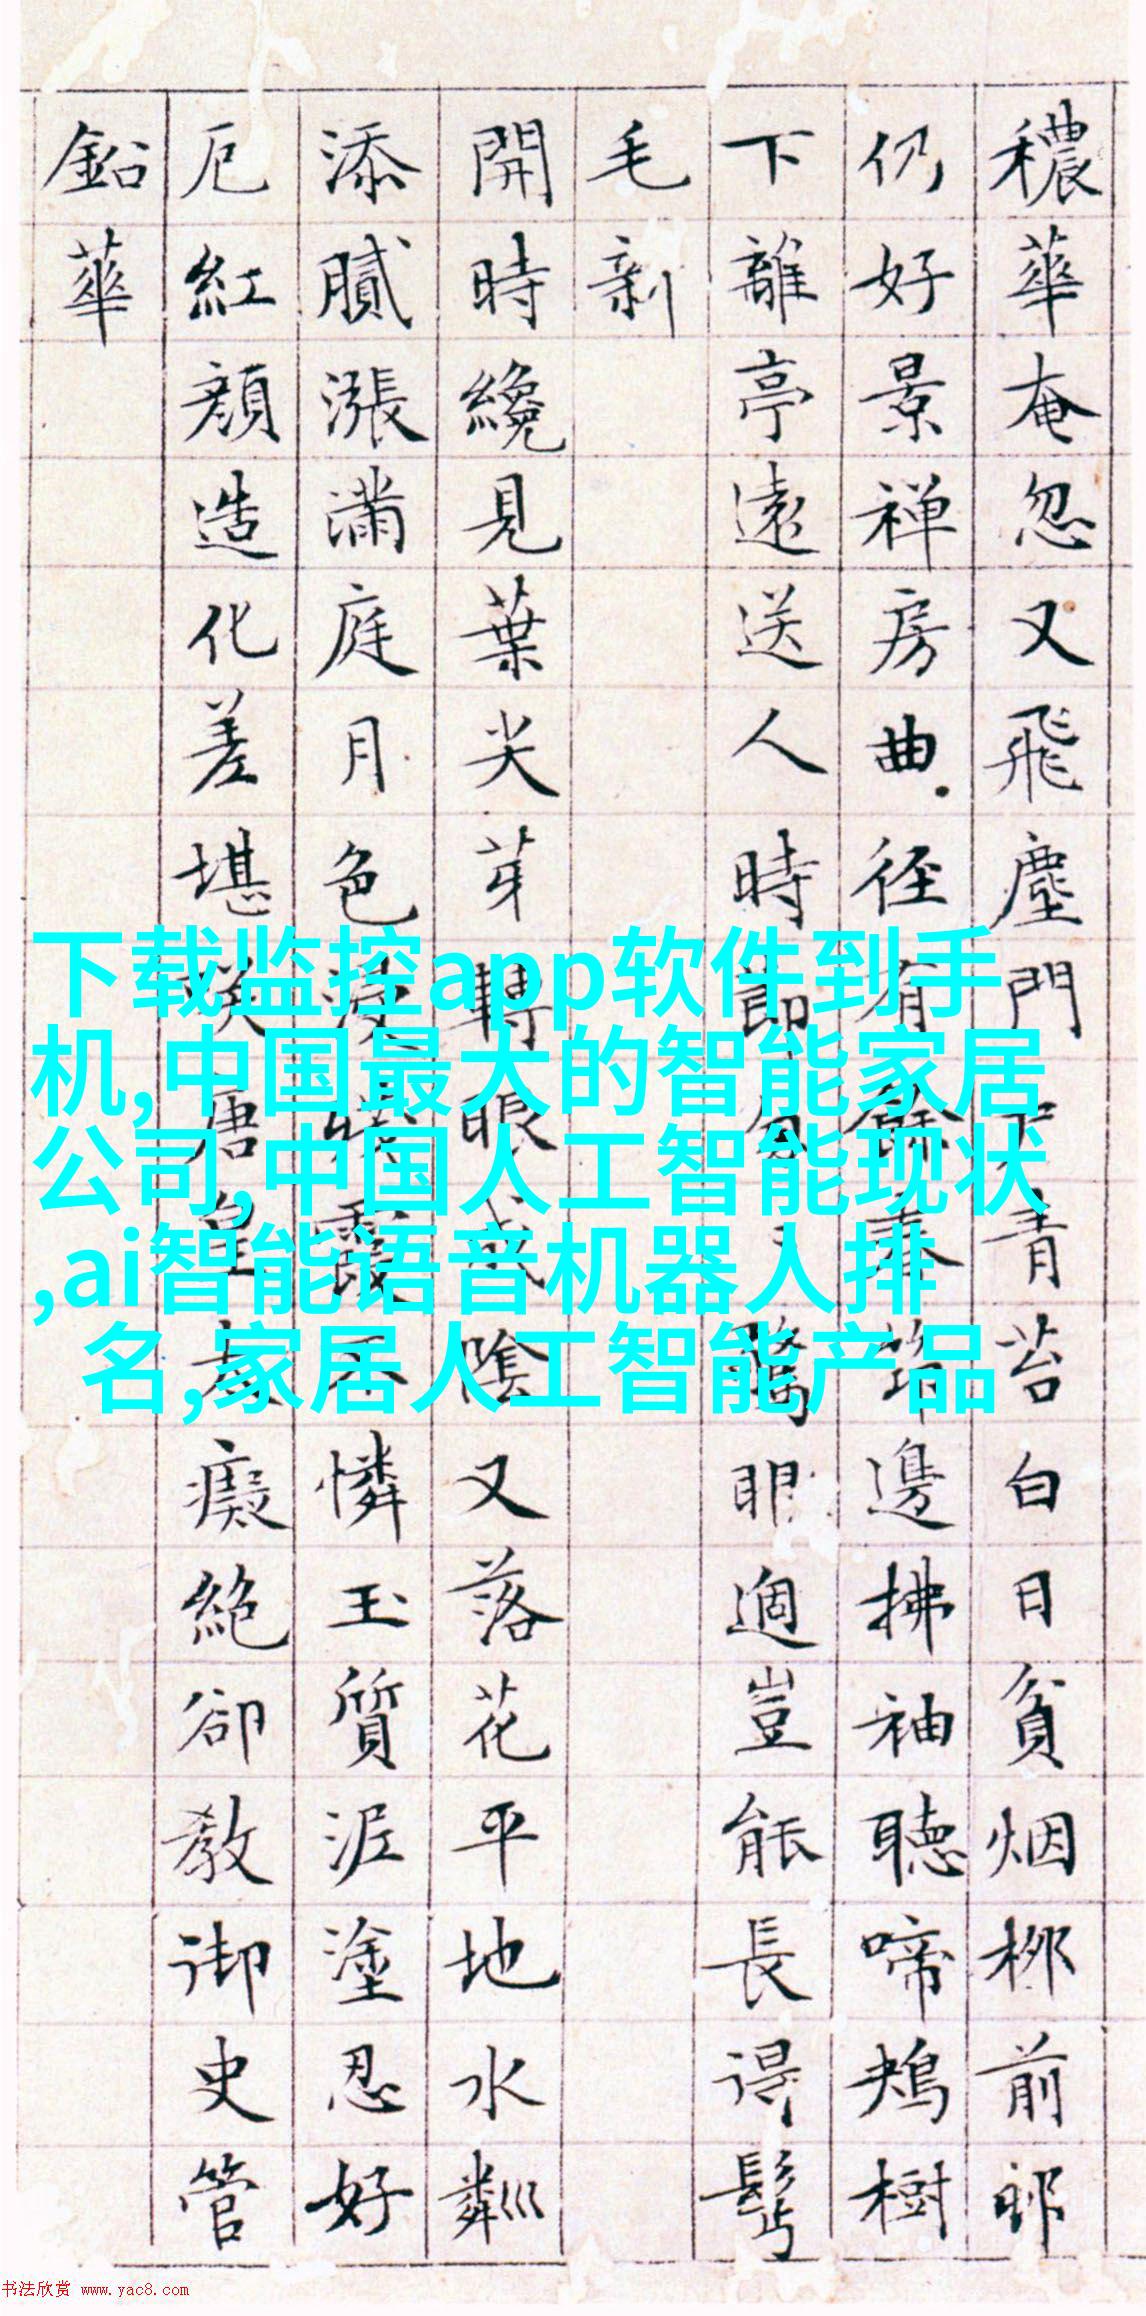 穠華奄忽又飛塵門戶青苔白日貧烟柳前邨
仍好景禅房曲徑有餘春笻邊拂袖聽啼鴂樹
下離亭遠送人時節匆驚眼過豈能長得鬂
毛新
開時纔見葉尖芽轉眼成陰又落花平地水粼
添膩漲滿庭月色浸霞不憐玉質泥塗忍好
厄紅顔造化差堪笑唐皇太癡絕卻教御史管
鉛華
下载监控app软件到手
机,中国最大的智能家居
公司,中国人工智能现状
,ai智能语音机器人排
名,家居人工智能产品
书法欣赏 www.yac8.com